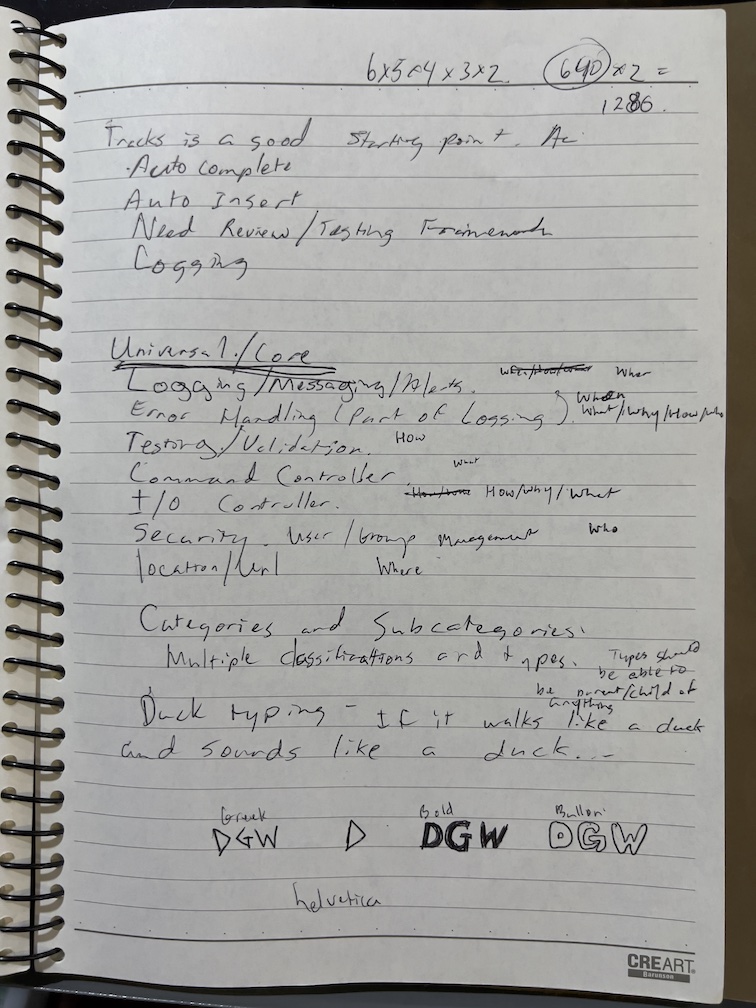 6x5x4x3x2 640 x2 =
1286.
Tracks is a good starting point. Ac
· Auto complete
Auto Insert
Need Review/Testing Framework
Logging
Universal/Core
Logging/Messaging/Alerts. When
Error Handling (Part of Logging) When What/Why/How/who
Testing/Validation. How
Command Controller. What
I/O Controller. How/Why/What
Security. User/Group Management Who
location/Url Where
Categories and Subcategories.
Multiple classifications and types. Types should
be able to
be parent/child of
anything
Duck typing - If it walks like a duck
and sounds like a duck...
Greek Bold Balloon
DGW D DGW DGW
helvetica
CREART
Barunson